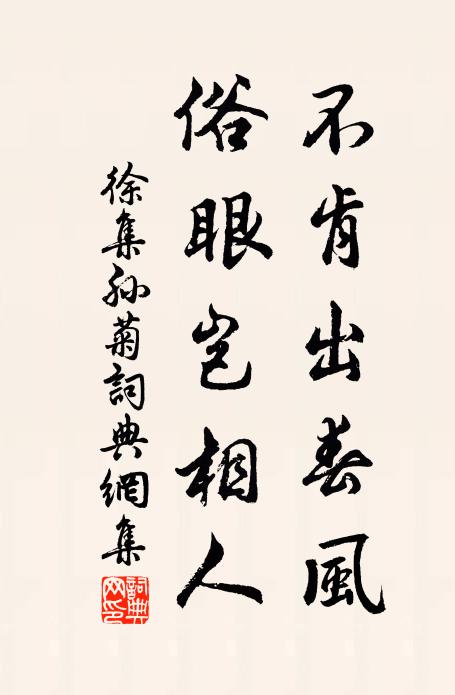 不肯出春風
俗眼岂相人
徐集孙菊詞典網集
詞典网印